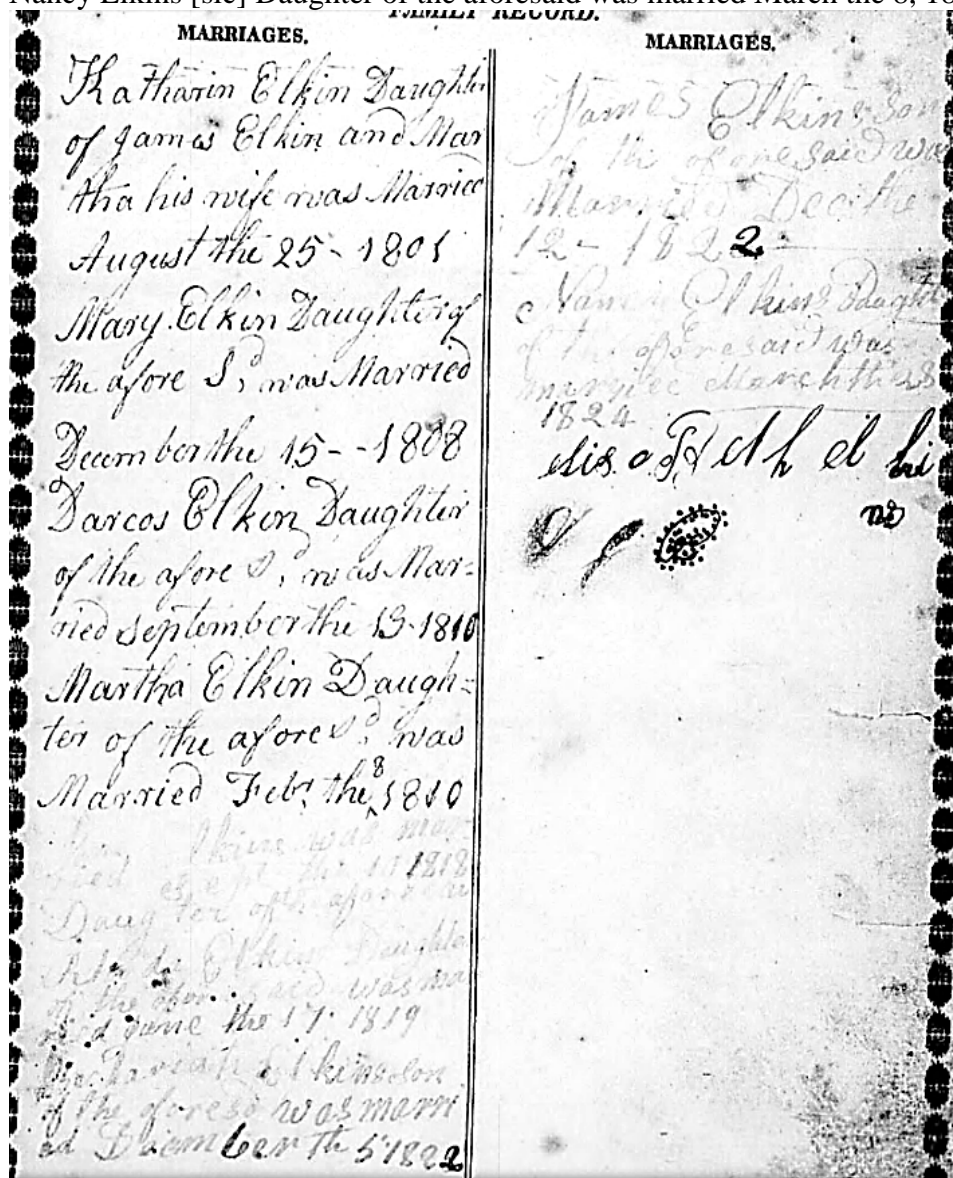 Nancy Elkins [sic] Daughter of the aforesaid was married March the 8, 18
FAMILY RECORD.
MARRIAGES.
Katharin Elkin Daughter
of James Elkin and Mar
tha his wife was Married
August the 25 - 1801
Mary Elkin Daughter of
the afore Sd, was Married
December the 15 - - 1808
Darcos Elkin Daughter
of the afore Sd, was Mar-
ried September the 13-1810
Martha Elkin Daugh=
ter of the afore Sd, was
Married Febr. the 8 1810
Elkins was mar
ried Sept the 1818
Daugter of the aforesaid
Elkins Daughter
of the afore said was ma
ried June the 17 1819
Zachariah Elkins son
of the aforesd was marri
ed December th 5 1822
MARRIAGES.
James Elkins Son
of the aforesaid was
Married Dec the
12 - 1822
Elkins Daught
of the aforesaid was
March the 8
1824